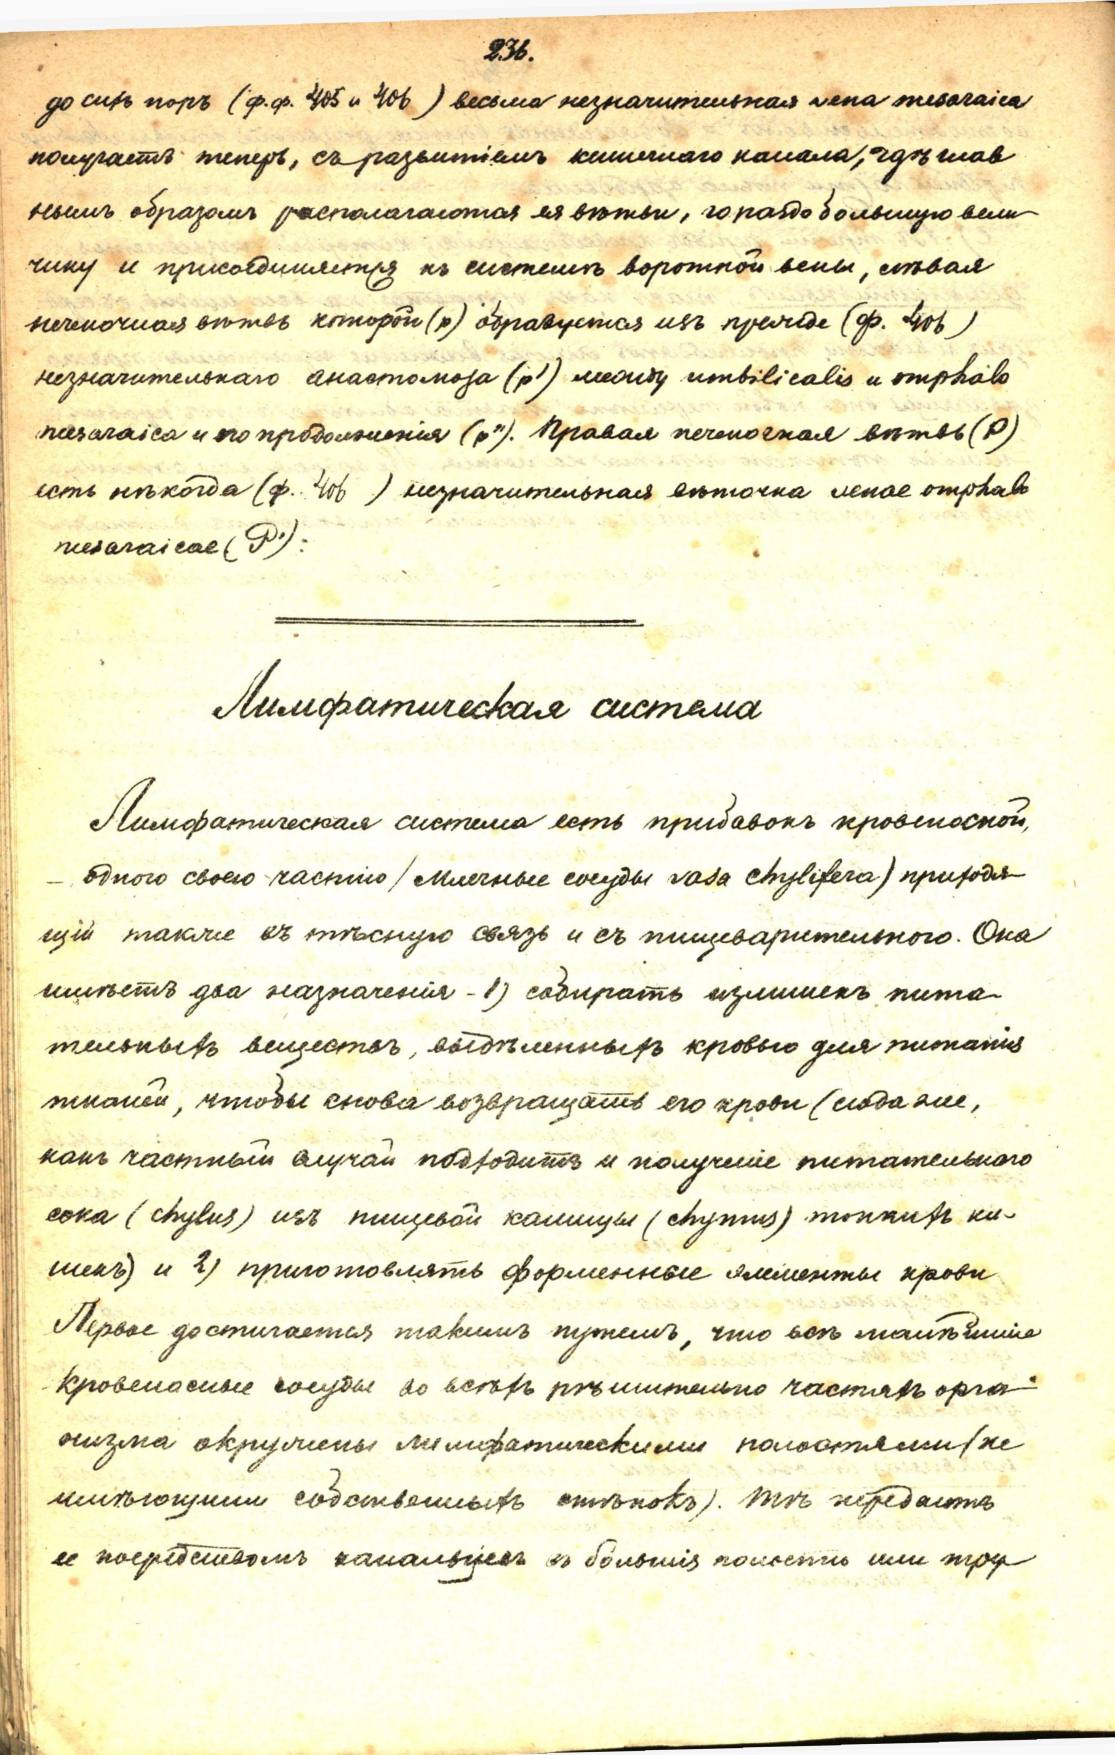 236.
до сихъ поръ (ф.ф. 405 и 406) весьма незначительная vena mesaraica
получаетъ теперь, съ развитіемъ кишечнаго канала, гдѣ глав
нымъ образомъ располагаются ея вѣтви, гораздо большую вели-
чину и присоединяется къ системѣ воротной вены, лѣвая
печеночная вѣтвь которой (р) образуется изъ прежде (ф. 406)
незначительнаго анастомоза (р') между umbilicalis и omphalo
mesaraica и его продолженія (р"). Правая печеночная вѣтвь (Р)
есть нѣкогда (ф. 406) незначительная вѣточка venae omphalo
mesaraicae (Р'):
Лимфатическая система
Лимфатическая система есть прибавокъ кровеносной,
– одного своею частію (Млечные сосуды vasa chylifera) приходя-
щій также въ тѣсную связь и съ пищеварительного. Она
имѣетъ два назначенія - 1) собирать излишекъ пита-
тельныхъ веществъ, выдѣленныхъ кровью для питанія
тканей, чтобы снова возвращать его крови (сюда же,
какъ частный случай подходитъ и полученіе питательнаго
сока (chylus) изъ пищевой кашицы (chymus) тонкихъ ки-
шекъ) и 2) приготовлять форменные элементы крови
Первое достигается такимъ путемъ, что всѣ малѣйшіе
кровеносные сосуды во всѣхъ рѣшительно частяхъ орга-
низма окружены лимфатическими полостями (не
имѣющими собственныхъ стѣнокъ). Тѣ передаютъ
ее посредствомъ канальцевъ въ большія полости или тру